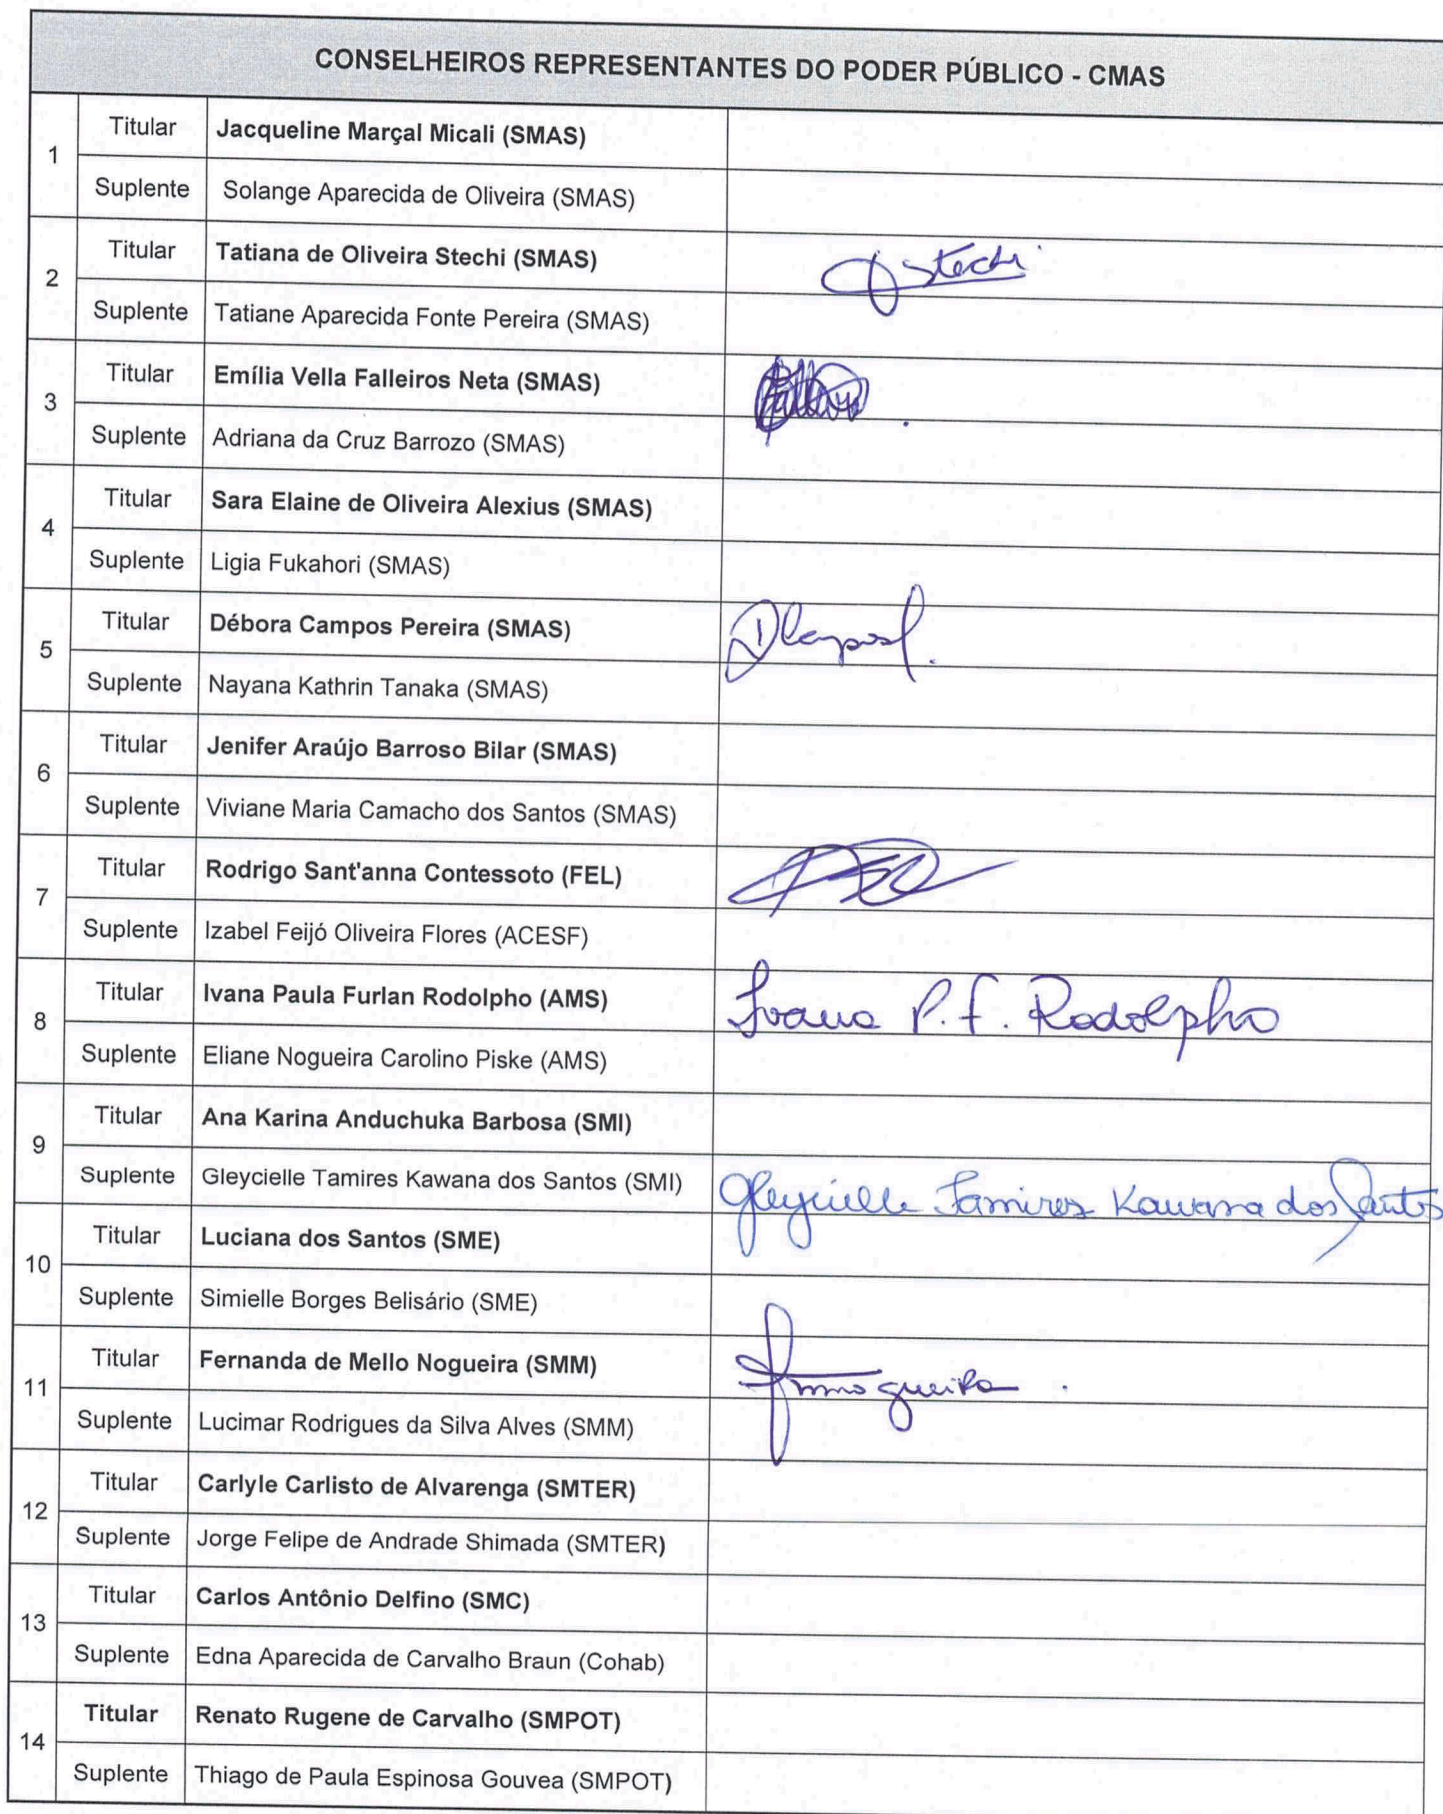 CONSELHEIROS REPRESENTANTES DO PODER PÚBLICO - CMAS
1
Titular Jacqueline Marçal Micali (SMAS)
Suplente Solange Aparecida de Oliveira (SMAS)
2
Titular Tatiana de Oliveira Stechi (SMAS) Stechi
Suplente Tatiane Aparecida Fonte Pereira (SMAS)
3
Titular Emília Vella Falleiros Neta (SMAS)
Suplente Adriana da Cruz Barrozo (SMAS)
4
Titular Sara Elaine de Oliveira Alexius (SMAS)
Suplente Ligia Fukahori (SMAS)
5
Titular Débora Campos Pereira (SMAS)
Suplente Nayana Kathrin Tanaka (SMAS)
6
Titular Jenifer Araújo Barroso Bilar (SMAS)
Suplente Viviane Maria Camacho dos Santos (SMAS)
7
Titular Rodrigo Sant'anna Contessoto (FEL)
Suplente Izabel Feijó Oliveira Flores (ACESF)
8
Titular Ivana Paula Furlan Rodolpho (AMS) Ivana P. F. Rodolpho
Suplente Eliane Nogueira Carolino Piske (AMS)
9
Titular Ana Karina Anduchuka Barbosa (SMI)
Suplente Gleycielle Tamires Kawana dos Santos (SMI) Gleycielle Tamires Kawana dos Santos
10
Titular Luciana dos Santos (SME)
Suplente Simielle Borges Belisário (SME)
11
Titular Fernanda de Mello Nogueira (SMM)
Suplente Lucimar Rodrigues da Silva Alves (SMM)
12
Titular Carlyle Carlisto de Alvarenga (SMTER)
Suplente Jorge Felipe de Andrade Shimada (SMTER)
13
Titular Carlos Antônio Delfino (SMC)
Suplente Edna Aparecida de Carvalho Braun (Cohab)
14
Titular Renato Rugene de Carvalho (SMPOT)
Suplente Thiago de Paula Espinosa Gouvea (SMPOT)